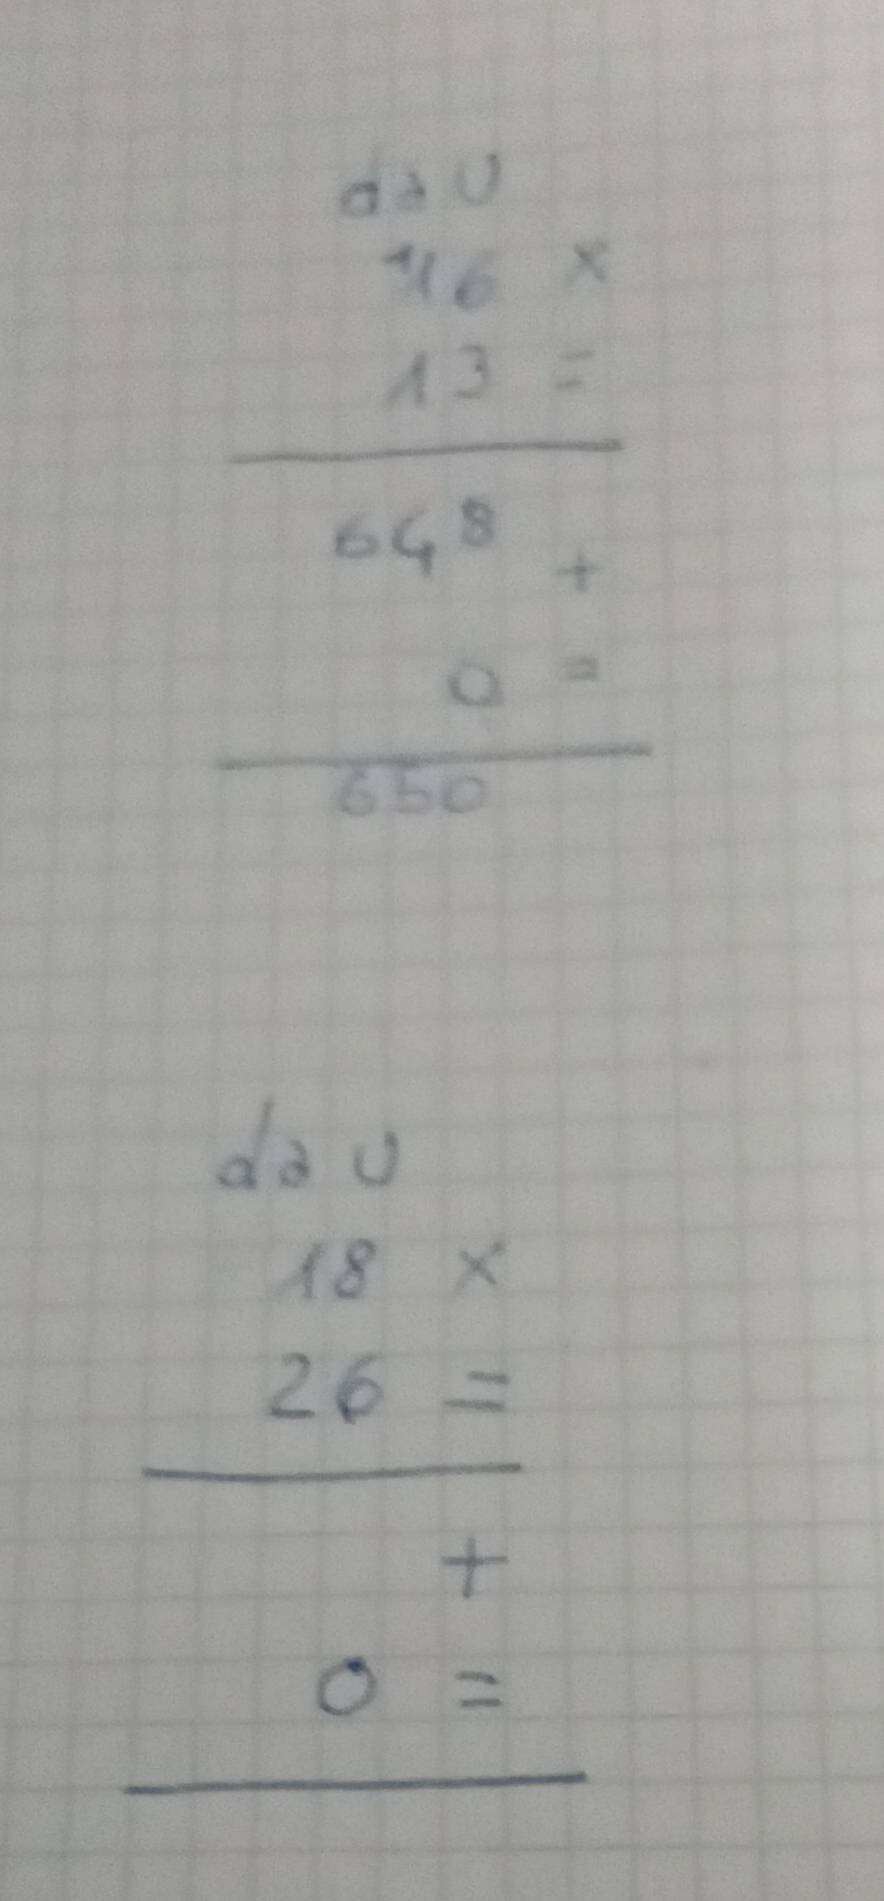 da U
16 x
13 =
648
+
0 =
650
da U
18 x
26 =
+
0 =